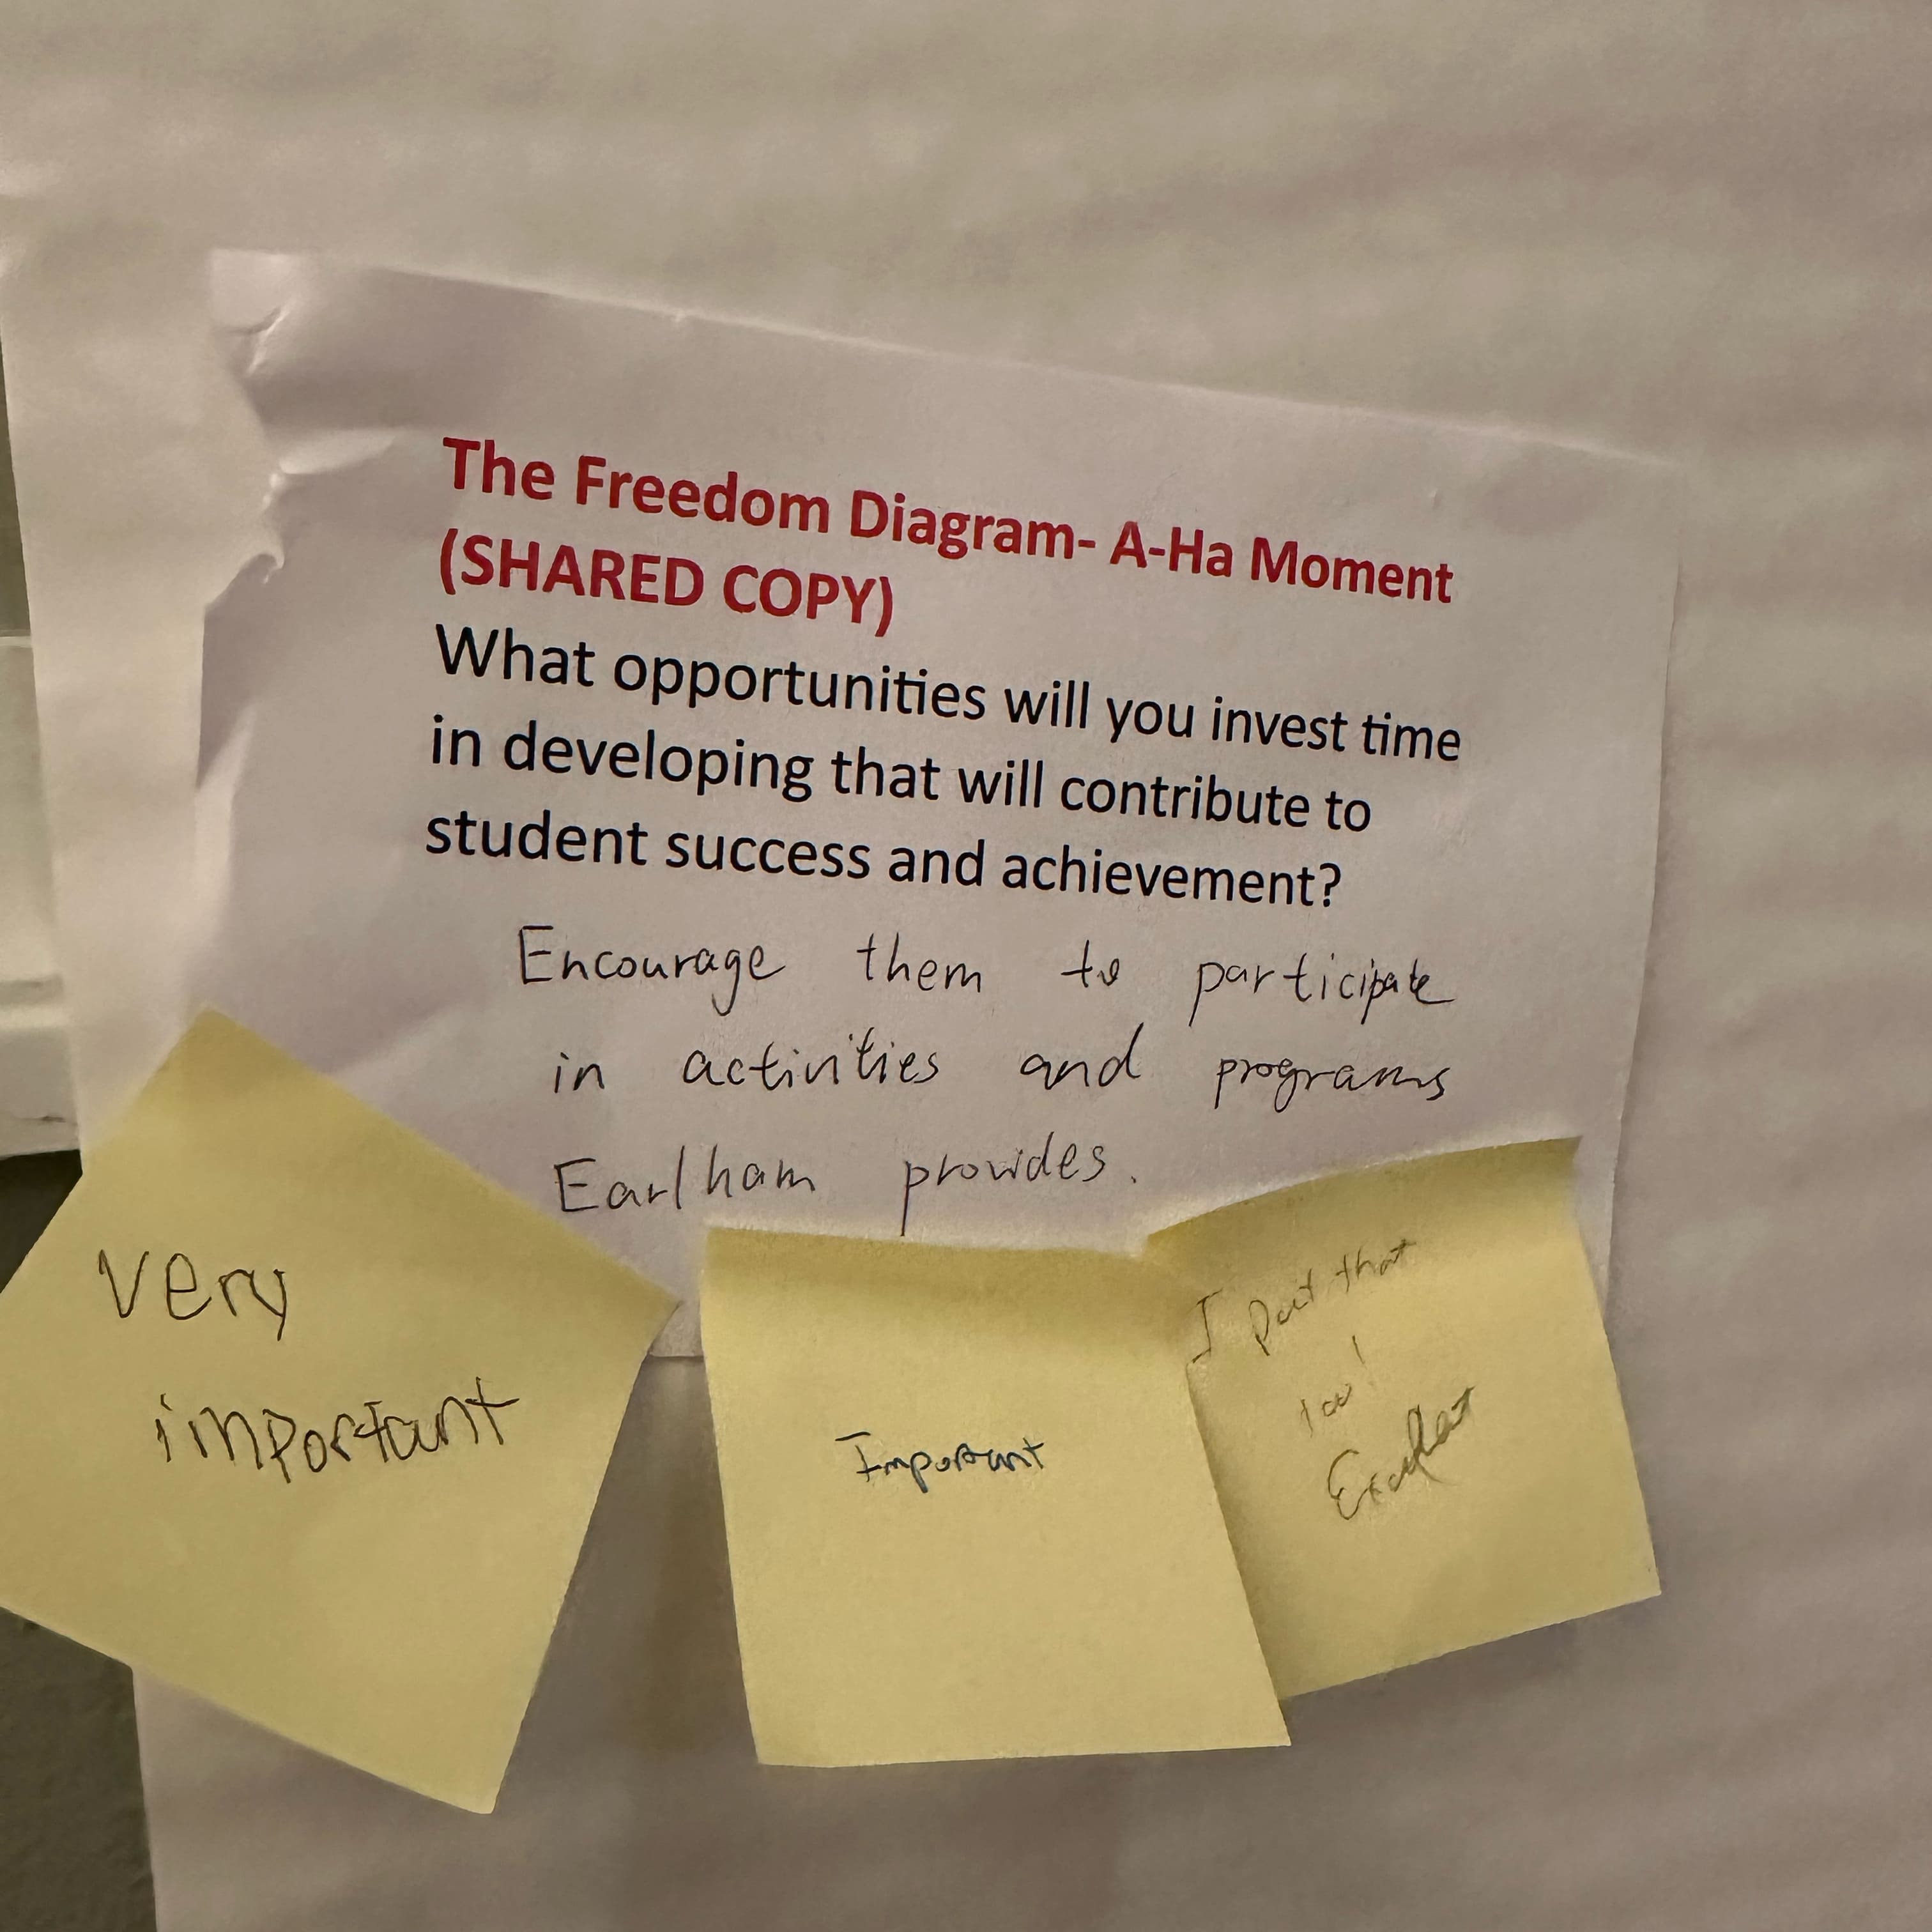 The Freedom Diagram- A-Ha Moment
(SHARED COPY)
What opportunities will you invest time
in developing that will contribute to
student success and achievement?
Encourage them to participate
in activities and programs
Earlham provides.
very
important
Important
I put that
too!
Excellent